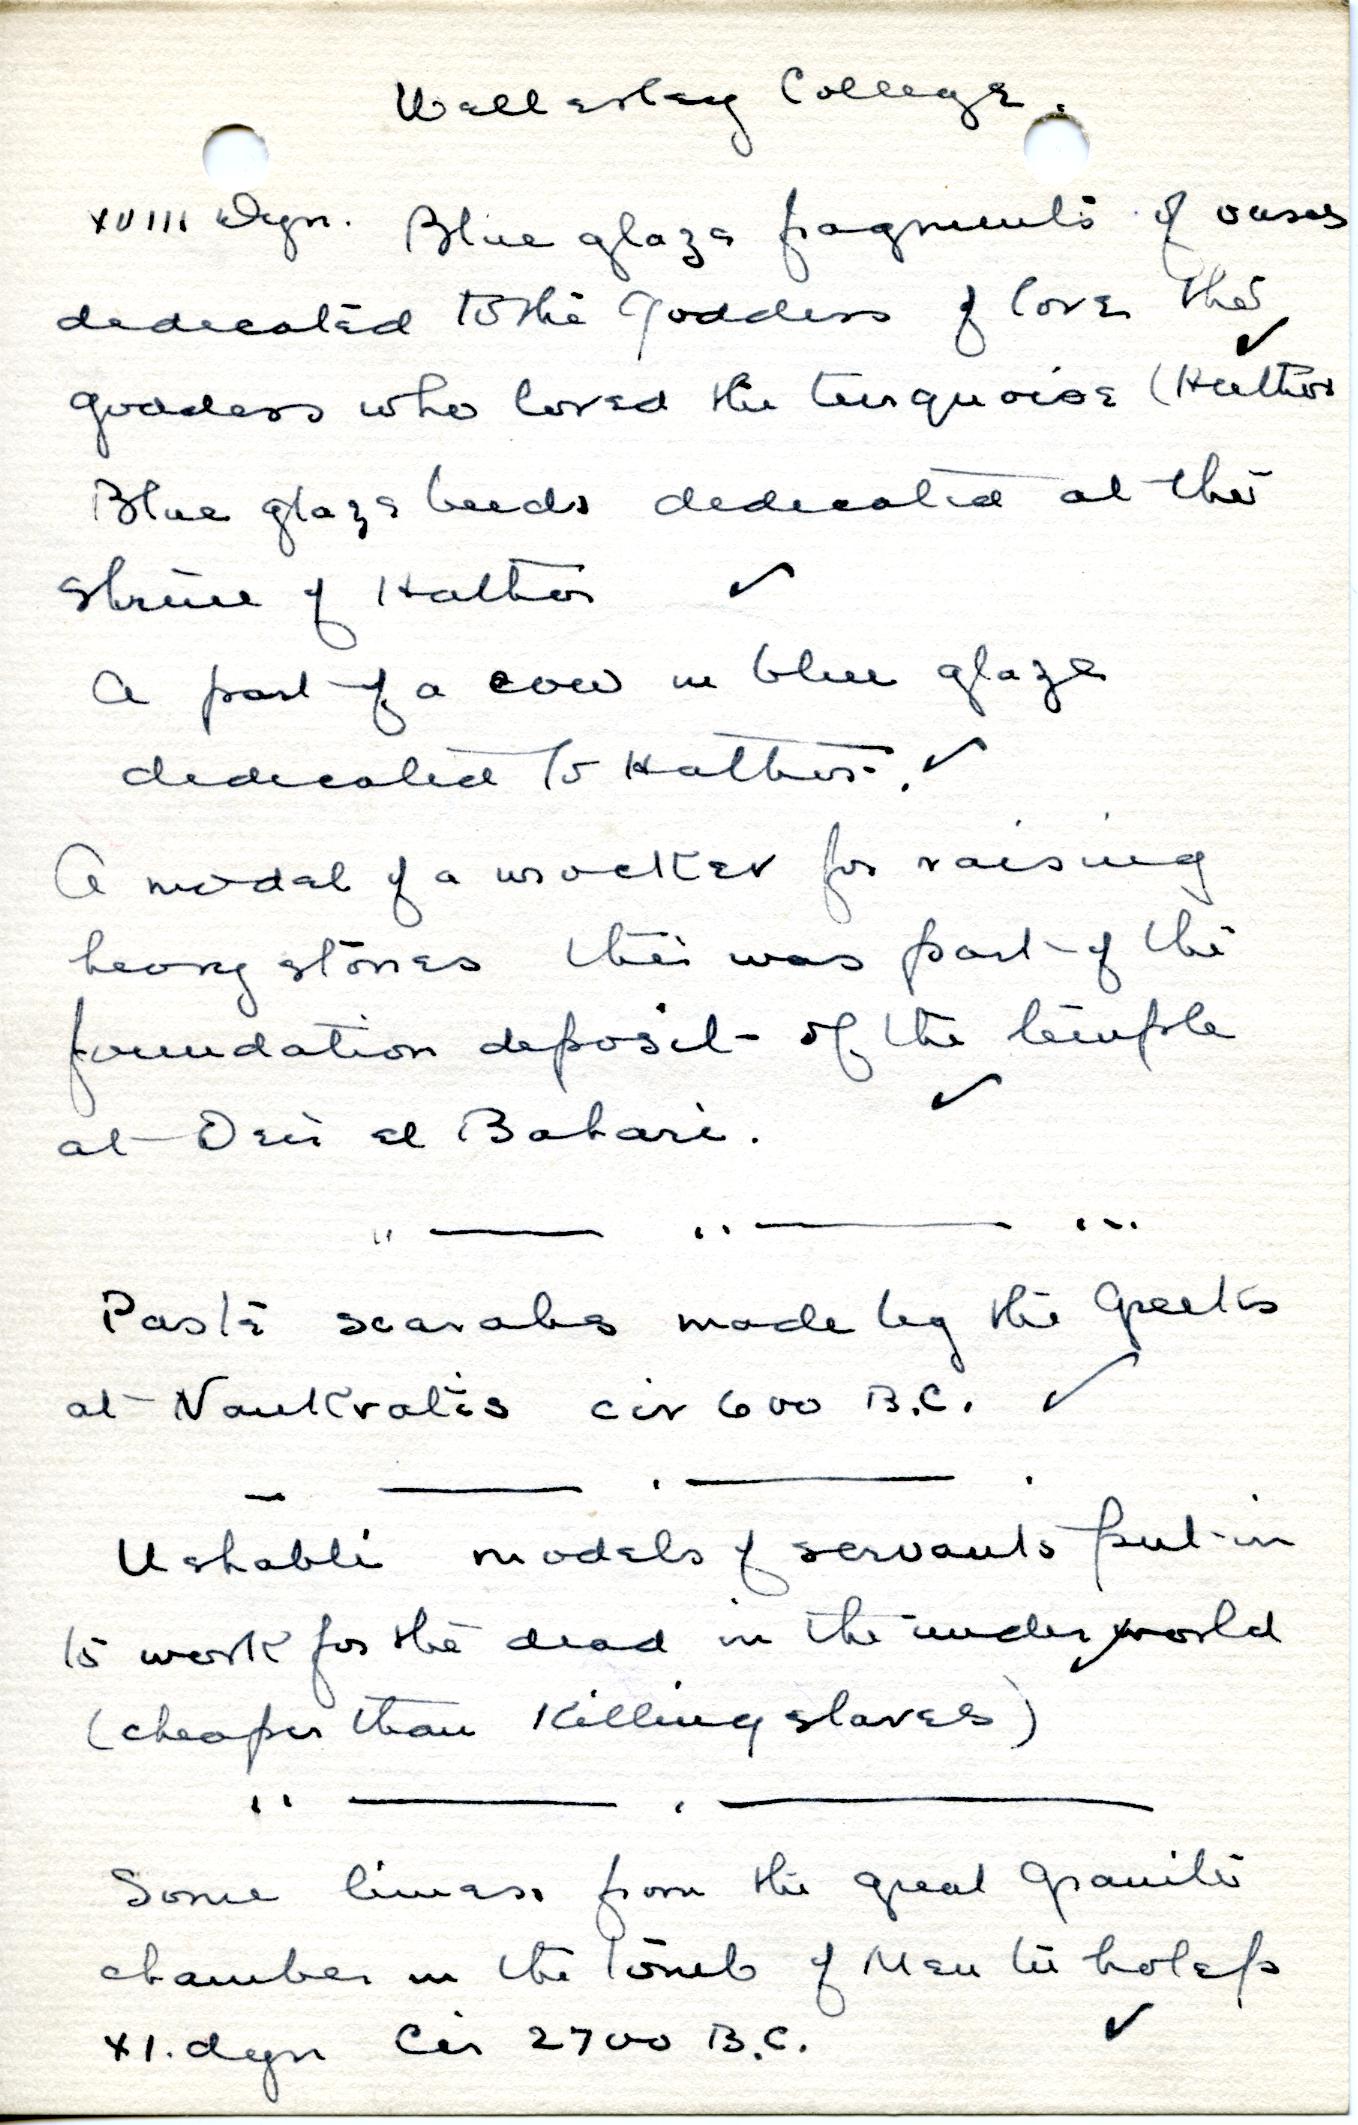 Wellesley College.
XVIII Dyn. Blue glaze fragments of vases
dedicated to the Goddess of love the
goddess who loved the turquoise (Hathor
Blue glaze beads dedicated at the
shrine of Hathor ✓
A part of a cow in blue glaze
dedicated to Hathor. ✓
A model of a rocker for raising
heavy stones this was part of the
foundation deposit of the temple
at Deir el Bahari. ✓
Paste scarabs made by the Greeks
at Naukratis cir 600 B.C. ✓
Ushabti models of servants put in
to work for the dead in the underworld
(cheaper than Killing slaves)
Some linen from the great Granite
chamber in the tomb of Mentuhotep
XI. dyn Cir 2700 B.C. ✓